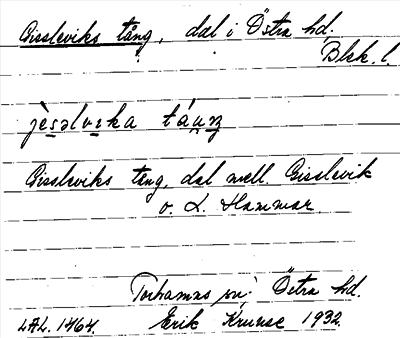 Gissleviks tång, dal i Östra hd.
Blek. l.
jèsəlvɛka táuŋ
Gissleviks tång, dal mell. Gisslevik
o. L. Hammar
Torhamns sn; Östra hd.
LAL. 1464. Erik Kruuse 1932.